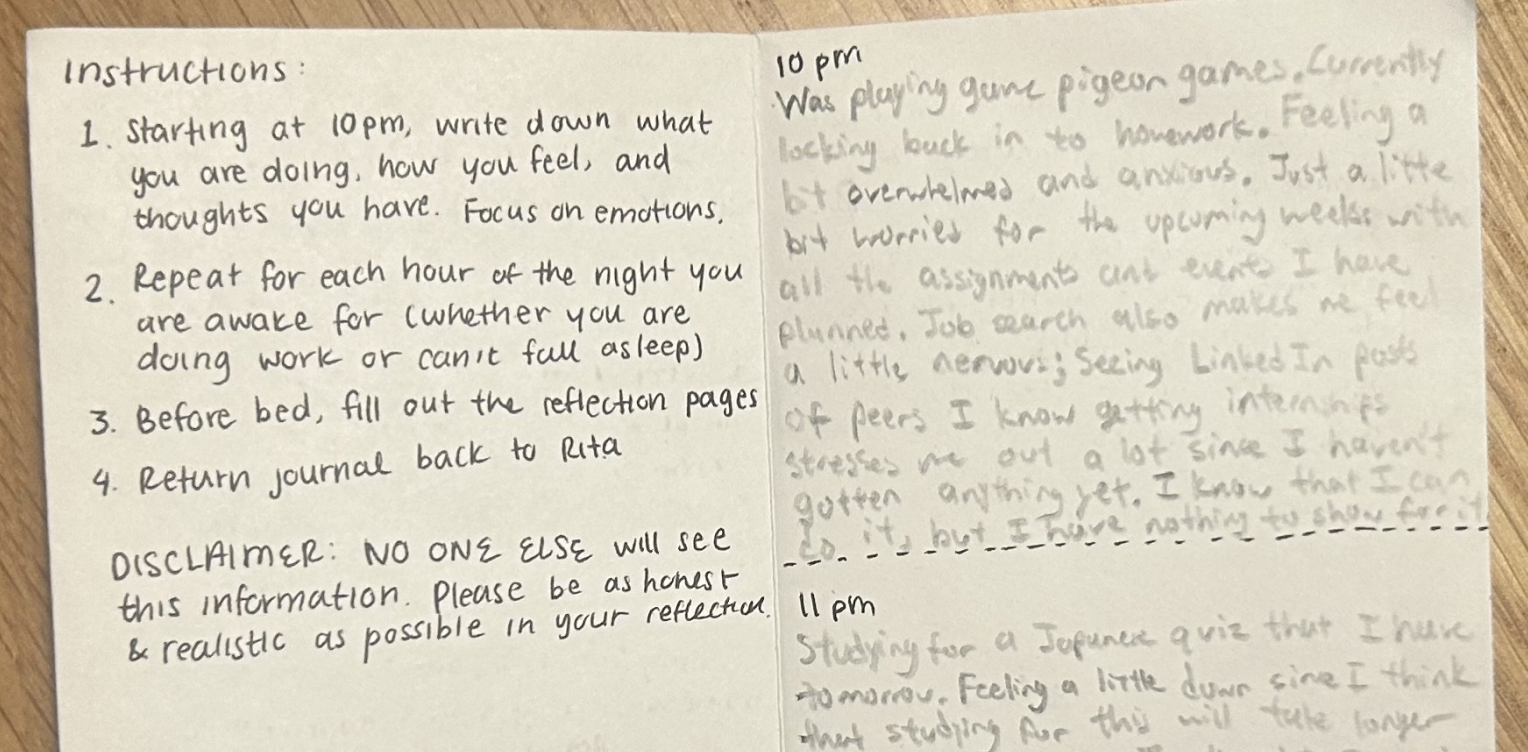 Instructions:
1. Starting at 10pm, write down what
you are doing, how you feel, and
thoughts you have. Focus on emotions.
2. Repeat for each hour of the night you
are awake for (whether you are
doing work or can't fall asleep)
3. Before bed, fill out the reflection pages
4. Return journal back to Rita
DISCLAIMER: NO ONE ELSE will see
this information. Please be as honest
& realistic as possible in your reflection.
10 pm
Was playing game pigeon games. Currently
locking back in to homework. Feeling a
bit overwhelmed and anxious. Just a little
bit worried for the upcoming weeks with
all the assignments and events I have
planned. Job search also makes me feel
a little nervous; Seeing LinkedIn posts
of peers I know getting internships
stresses me out a lot since I haven't
gotten anything yet. I know that I can
do it, but I have nothing to show for it
11 pm
Studying for a Japanese quiz that I have
tomorrow. Feeling a little down since I think
that studying for this will take longer